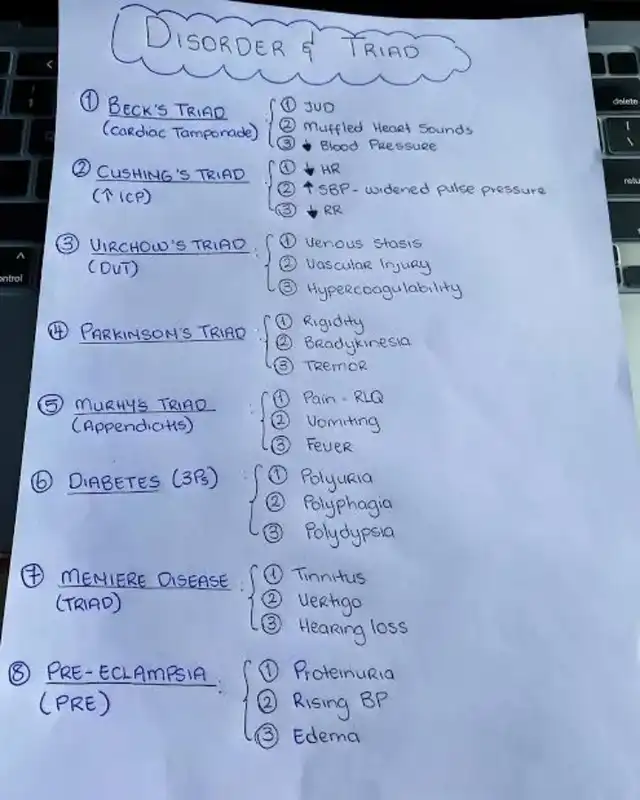 DISORDER & TRIAD
① BECK'S TRIAD
(Cardiac Tamponade)
① JVD
② Muffled Heart Sounds
③ ↓ Blood Pressure
② CUSHING'S TRIAD
(↑ ICP)
① ↓ HR
② ↑ SBP - widened pulse pressure
③ ↓ RR
③ VIRCHOW'S TRIAD :
(DVT)
① Venous Stasis
② Vascular Injury
③ Hypercoagulability
④ PARKINSON'S TRIAD :
① Rigidity
② Bradykinesia
③ Tremor
⑤ MURHY'S TRIAD :
(Appendicitis)
① Pain - RLQ
② Vomiting
③ Fever
⑥ DIABETES (3Ps) :
① Polyuria
② Polyphagia
③ Polydypsia
⑦ MENIERE DISEASE :
(TRIAD)
① Tinnitus
② Vertigo
③ Hearing loss
⑧ PRE-ECLAMPSIA :
(PRE)
① Proteinuria
② Rising BP
③ Edema
delete
retu
ontrol